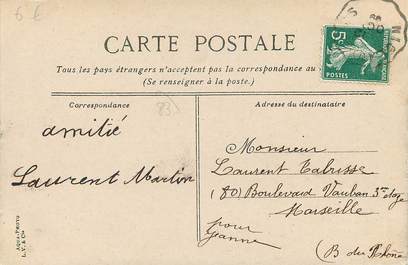 6 €
CARTE POSTALE
Tous les pays étrangers n'acceptent pas la correspondance au
(Se renseigner à la poste.)
5c
POSTES
Correspondance
Adresse du destinataire
83
amitié
Laurent Martin
Monsieur
Laurent Tabrisse
180 Boulevard Vauban 3me étage
Marseille
pour
Jeanne
(B du Rhône
AQUA-PHOTO
L. V. & Cie